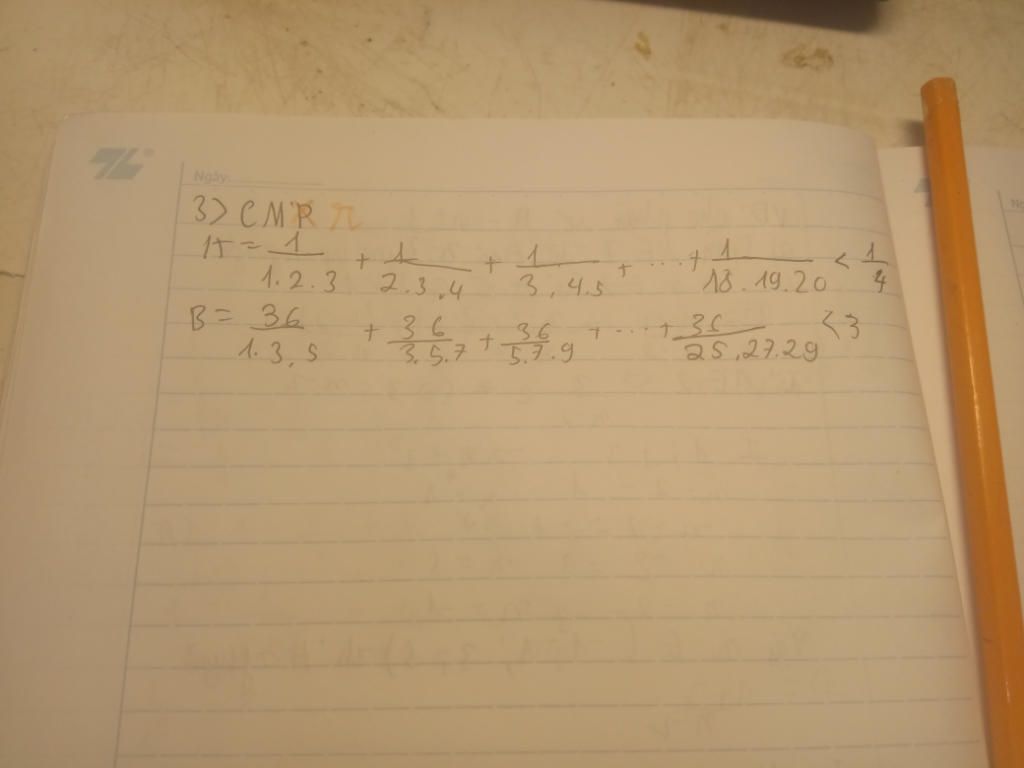 Ngày:
3> CMR
A = 1/1.2.3 + 1/2.3.4 + 1/3.4.5 + ... + 1/18.19.20 < 1/4
B = 36/1.3.5 + 36/3.5.7 + 36/5.7.9 + ... + 36/25.27.29 < 3